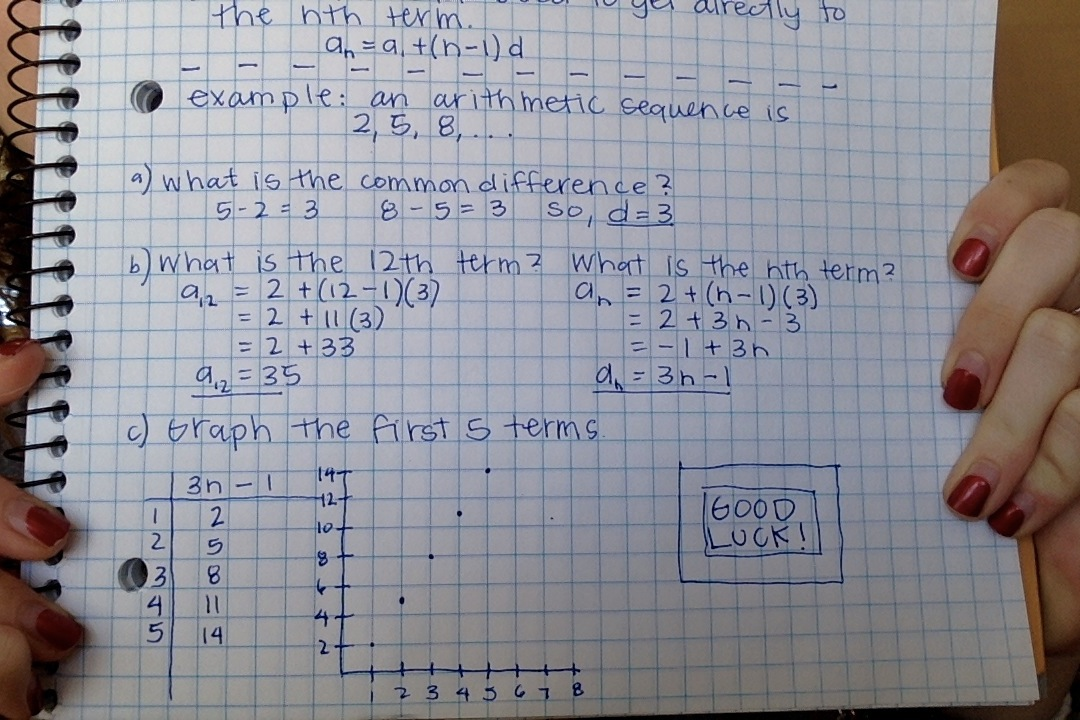 to get directly to
the nth term.
aₙ = a₁ + (n-1)d
example: an arithmetic sequence is
2, 5, 8, ...
a) What is the common difference?
5-2 = 3 8-5 = 3 so, d=3
b) What is the 12th term? What is the nth term?
a₁₂ = 2 + (12-1)(3) aₙ = 2 + (n-1)(3)
= 2 + 11(3) = 2 + 3n - 3
= 2 + 33 = -1 + 3n
a₁₂ = 35 aₙ = 3n-1
c) Graph the first 5 terms.
3n - 1
1 2
2 5
3 8
4 11
5 14
14
12
10
8
6
4
2
1 2 3 4 5 6 7 8
GOOD
LUCK!